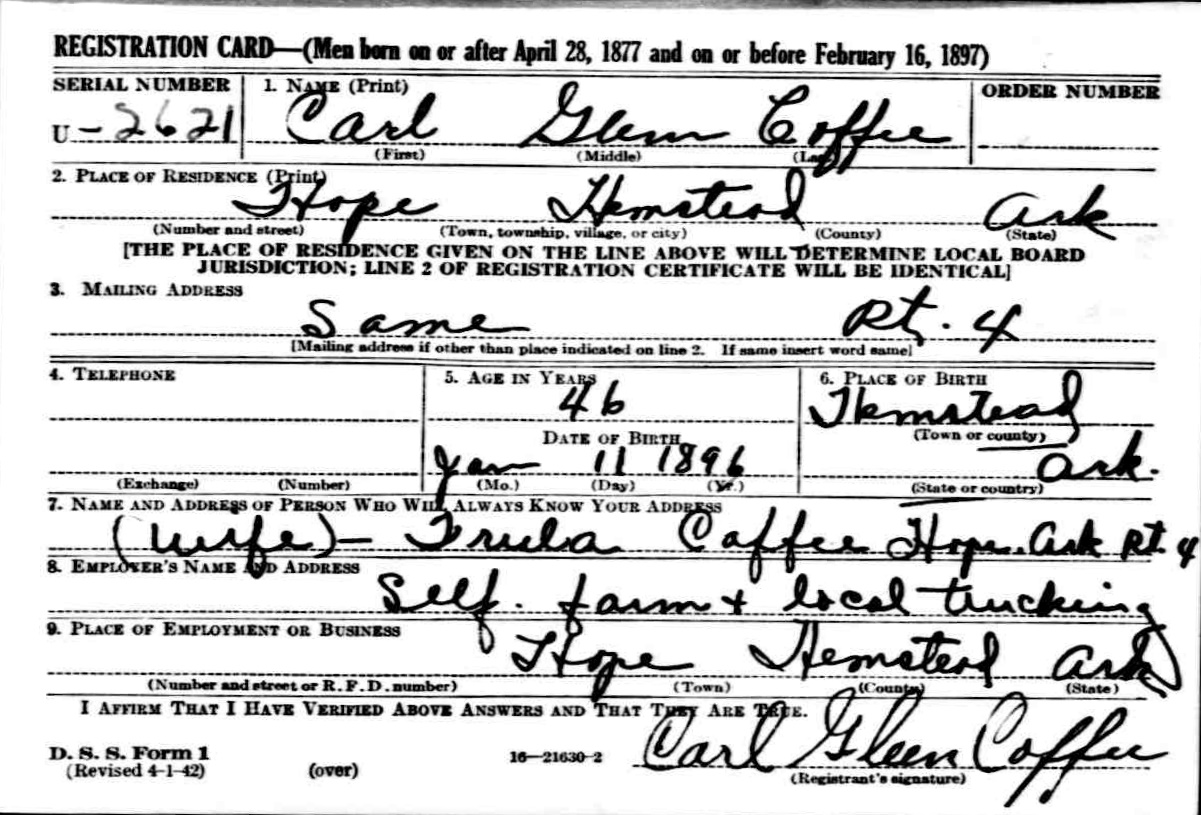 REGISTRATION CARD—(Men born on or after April 28, 1877 and on or before February 16, 1897)
SERIAL NUMBER 1. NAME (Print) ORDER NUMBER
U-2621 Carl Glenn Coffee
(First) (Middle) (Last)
2. PLACE OF RESIDENCE (Print)
Hope Hemstead Ark
(Number and street) (Town, township, village, or city) (County) (State)
[THE PLACE OF RESIDENCE GIVEN ON THE LINE ABOVE WILL DETERMINE LOCAL BOARD
JURISDICTION; LINE 2 OF REGISTRATION CERTIFICATE WILL BE IDENTICAL]
3. MAILING ADDRESS
Same Rt. 4
[Mailing address if other than place indicated on line 2. If same insert word same]
4. TELEPHONE 5. AGE IN YEARS 6. PLACE OF BIRTH
46 Hemstead
DATE OF BIRTH (Town or county)
Jan 11 1896 Ark.
(Exchange) (Number) (Mo.) (Day) (Yr.) (State or country)
7. NAME AND ADDRESS OF PERSON WHO WILL ALWAYS KNOW YOUR ADDRESS
(Wife)- Coffee Hope. Ark Rt. 4
8. EMPLOYER'S NAME AND ADDRESS
Self. farm + local trucking
9. PLACE OF EMPLOYMENT OR BUSINESS
Hope Hemstead Ark
(Number and street or R. F. D. number) (Town) (County) (State)
I AFFIRM THAT I HAVE VERIFIED ABOVE ANSWERS AND THAT THEY ARE TRUE.
Carl Gleen Coffee
D. S. S. Form 1 16—21630-2
(Revised 4-1-42) (over) (Registrant's signature)